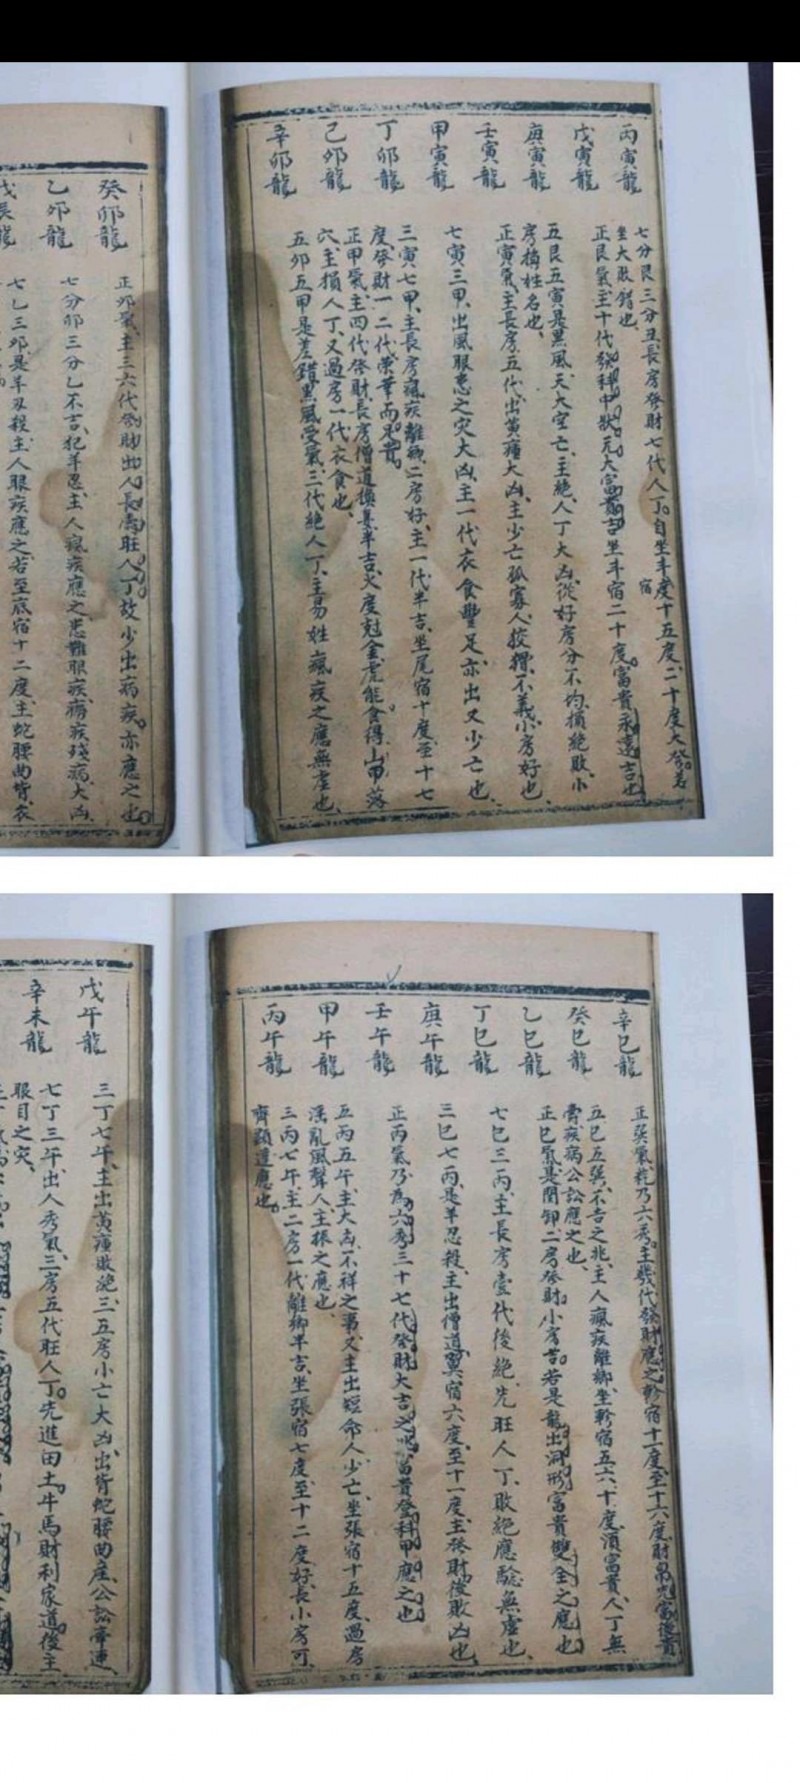 丙寅龍
七分艮三分丑、長房發財七代人丁。自坐斗宿度十五度、二十度大發、若
坐大敗錯也、
戊寅龍
正艮氣主十代發科中狀元大富貴吉坐斗宿二十度、富貴永遠吉也
庚寅龍
五艮五寅是黑風天大空亡、主絕人丁大凶、從好房分不均、損絕敗、小
房換姓名也、
壬寅龍
正寅氣、主長房五代出黃瘇大凶、主少亡孤寡人、狡猾不義、小房好也
甲寅龍
七寅三甲、出風眼患之灾大凶、主一代衣食豐足亦出又少亡也、
丁卯龍
三寅七甲、主長房瘋疾離鄉、二房好、主一代半吉、坐尾宿十度至十七
度發財一二代榮華而足貴
己卯龍
正甲氣、主四代發財、長房僧道損妻半吉、火度尅金虎能食得、山甲落
穴、主損人丁、又過房一代衣食也、
辛卯龍
五卯五甲是差錯黑風受氣、三代絕人丁、主易姓瘋疾之應無虛也、
癸卯龍
正卯氣、主三六代發財出人長壽旺人丁、故少出病疾、亦應之也
乙卯龍
七分卯三分乙不吉、犯羊忍、主人瘋疾應之、患難眼疾、癆疾殘病、大凶、
戊辰龍
七乙三卯、是羊刃殺主人眼疾應之、若至底宿十二度、主蛇腰曲背、衣
辛巳龍
正巽氣乾乃六秀、主幾代發財應之、軫宿十一度至十六度、財帛
癸巳龍
五巳五巽、不吉之兆、主人瘋疾離鄉、坐軫宿五六十度、須富貴人丁無
勞疾病公訟應之也、
乙巳龍
正巳氣是閉卸二房發財、小房苦。若是龍出洞形、富貴雙全之應也
丁巳龍
七巳三丙、主長房壹代後絕、先旺人丁、敗絕應驗無虛也、
庚午龍
三巳七丙、是羊忍殺、主出僧道、翼宿六度至十一度、主發財、後敗凶也
壬午龍
正丙氣乃為六秀、三十七代發財大吉之兆、富貴登科甲應之也
甲午龍
五丙五午、主大凶不祥之事、又主出短命人少亡、坐張宿十五度、過房
淫亂風聲人、主振之應也、
丙午龍
三丙七午、主二房一代離鄉半吉、坐張宿七度至十二度好、長小房可
齊顯達應也。
戊午龍
三丁七午、主出黃瘇敗絕、三五房小亡大凶、出背蛇腰曲症、公訟牽連、
辛未龍
七丁三午、出人秀氣、三房五代旺人丁。先進田土、牛馬財利家道、後主
眼目之灾、